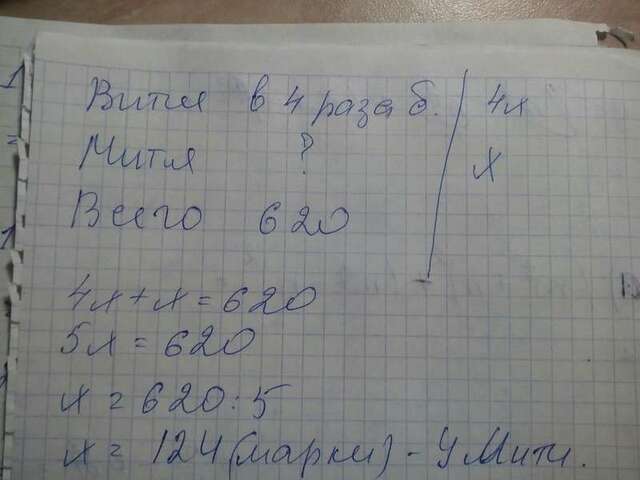 Витя в 4 раза б. 4х
Митя ? х
Всего 620
4х+х=620
5х=620
х=620:5
х=124(марки)-У Мити.